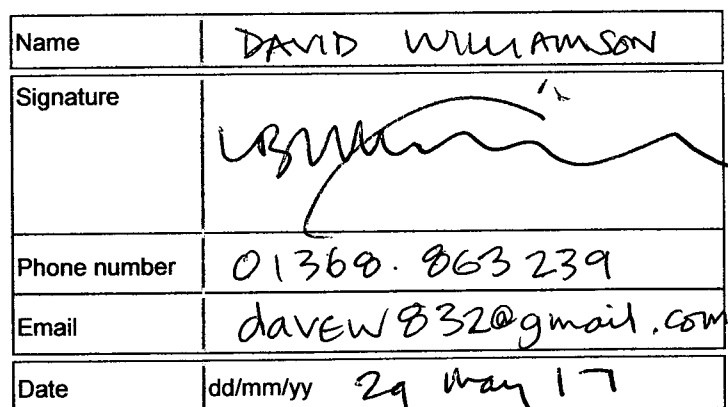 Name DAVID WILLIAMSON
Signature
Phone number 01368. 863 239
Email davew832@gmail.com
Date dd/mm/yy 29 May 17